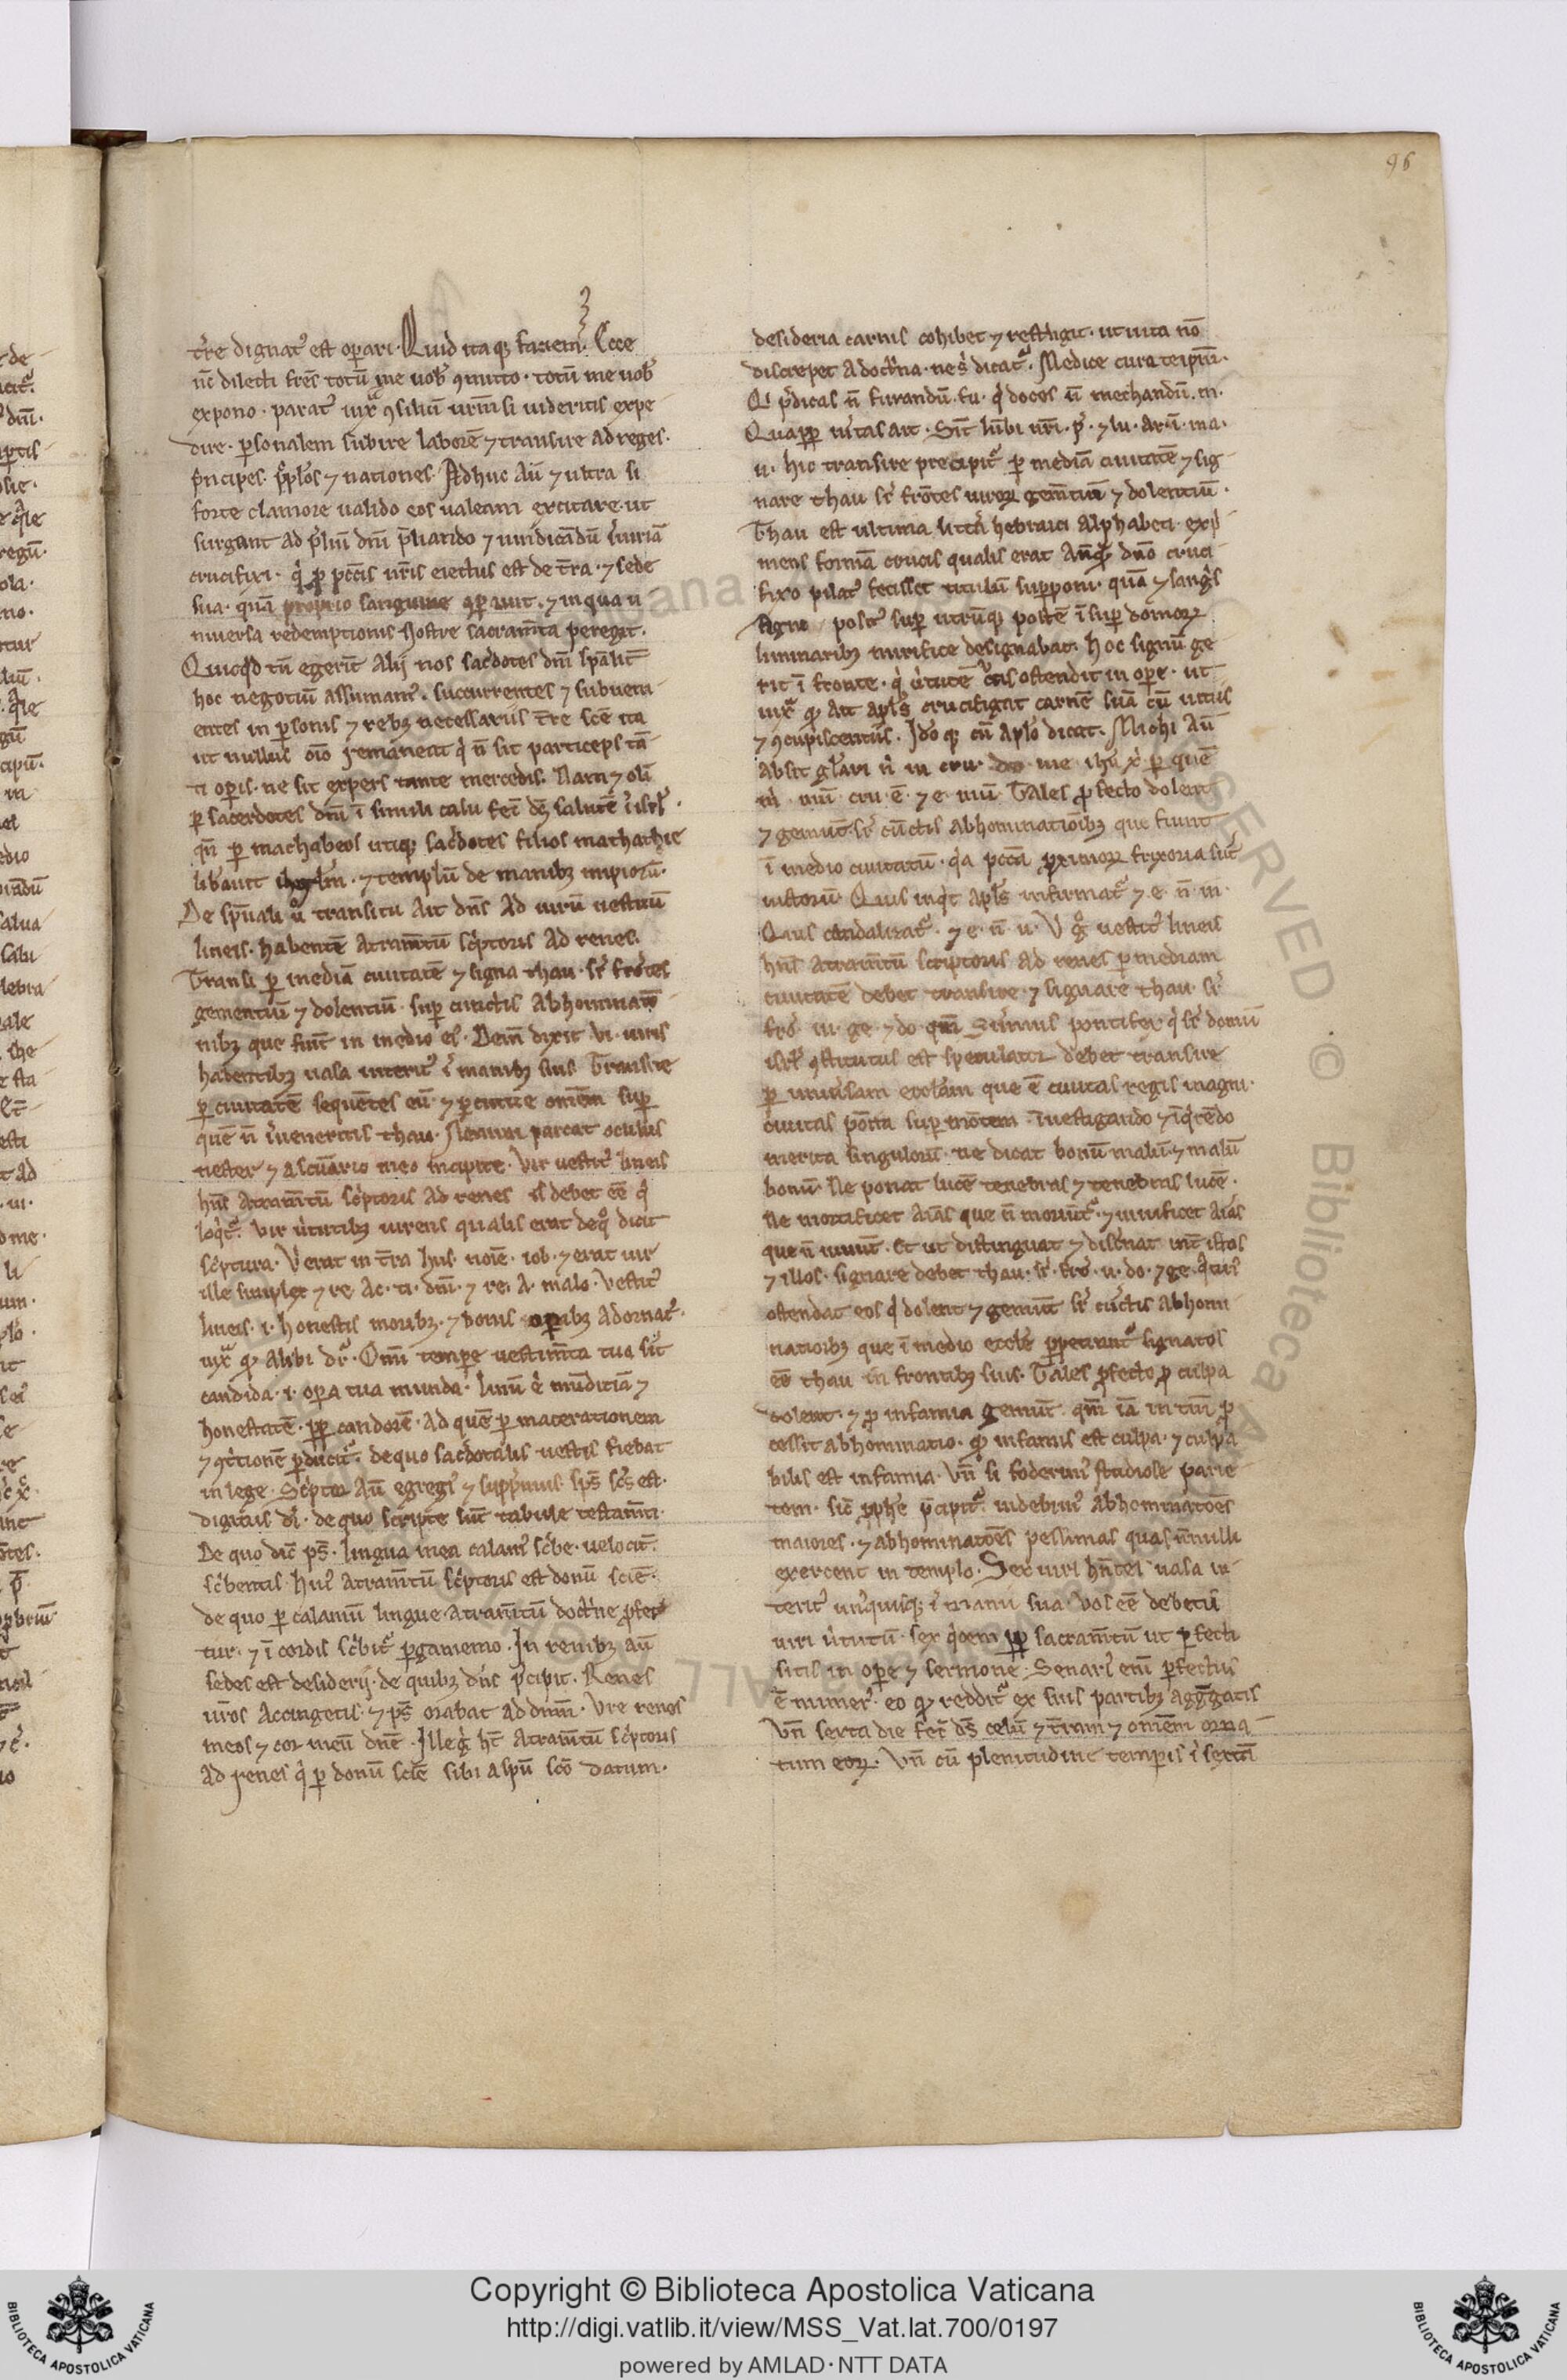 96
t̄re dignat᷒ est oꝑari. Quid itaqꝫ faciem᷒. Ecce
nc̄ dilecti fr̄es totū me uob᷒ ꝯmitto. totū me uob᷒
expono. parat᷒ iuxͣ ꝯsiliū ur̄m si uideritis expe
dire. ꝑsonalem subire laborē ⁊ transire ad reges.
p̄ncipes. pp̄los ⁊ nationes. Adhuc aū ⁊ ultra si
forte clamore ualido eos ualeam excitare. ut
surgant ad p̄liū dn̄i p̄liando ⁊ uindicādū iniuriā
crucifixi. qͥ ꝓ pcc̄is nr̄is eiectus est de t̄ra. ⁊ sede
sua. quā proprio sanguine ꝯꝑauit. ⁊ in qua u
niuersa redemptionis nostre sacram̄ta peregit.
Quicqͥd tn̄ egerīt alij nos sacͬdotes dn̄i spālit̄
hoc negotiū assumam᷒. succurrentes ⁊ subueni
entes in ꝑsonis ⁊ rebꝫ necessariis t̄re sc̄e ita
ut nullus oīo remaneat qͥ n̄ sit particeps tā
ti oꝑis. ne sit expers tante mercedis. Nam ⁊ olī
ꝑ sacerdotes dn̄i ī simili casu fec̄ ds̄ salutē ī isrl̄.
qn̄ ꝑ machabeos utiqꝫ sacͬdotes filios mathathie
libauit ihrlm̄. ⁊ templū de manibꝫ impiorū.
De spūali uͦ transitu ait dn̄s ad uirū uestitū
lineis. habentē atram̄tū scͥptoris ad renes.
Transi ꝑ mediā ciuitatē ⁊ signa thau. sr̄ frōtes
gementiū ⁊ dolentiū. suꝑ cunctis abhominatio
nibꝫ que fiūt in medio ei᷒. Dein̄ dixit vi. uiris
habentibꝫ uasa interit᷒ ī manibꝫ suis. Transite
ꝑ ciuitatē sequētes eū. ⁊ ꝑcutite omēm suꝑ
quē n̄ īueneritis thau. Nemini parcat oculus
uester ⁊ a scūario meo incipite. Vir uestit᷒ lineis
hn̄s atram̄tū scͥptoris ad renes is debet ēe qͥ
loqͥtͬ. Vir uͥtutibꝫ uirens qualis erat de qͦ dicit
scͥptura. Vͥ erat in t̄ra hus. noīe. iob. ⁊ erat uir
ille simplex ⁊ re. ac. ti. dm̄. ⁊ re. a. malo. Vestit᷒
lineis. i. honestis moribꝫ. ⁊ bonis oꝑibꝫ adornat᷒.
iuxͣ qͩ alibi drͬ. Omī tempore uestim̄ta tua sīt
candida. i. oꝑa tua munda. linū ē mūditiā ⁊
honestatē. ꝓpͭ candorē. ad quē ꝑ macerationem
⁊ ꝯtͥtionē ꝑducitͬ. de quo sacͬdotalis uestis fiebat
in lege. Scͥptor aū egregi᷒ ⁊ supͬmus. sps̄ scs̄ est.
digitus di. de quo scripte sūt tabule testam̄ti.
De quo dic̄ ps̄. lingua mea calam᷒ scͥbe. uelocit̄.
scͥbentis. hui᷒ atram̄tū scͥptoris est donū sciē.
de quo ꝑ calamū lingue atram̄tū doctͥne ꝓfer
tur. ⁊ ī cordis scͥbitͬ ꝑgameno. In renibꝫ aū
sedes est desiderij. de quibꝫ dn̄s p̄cipit. Renes
ur̄os accingetis. ⁊ ps̄ orabat ad dnm̄. Vre renes
meos ⁊ cor meū dn̄e. Ille gͥ ht̄ atram̄tū scͥptoris
ad renes qͥ ꝑ donū sciē sibi a spū scō datum.
desideria carnis cohibet ⁊ restͥngit. ut uita nō
discrepet a doctͥna. ne sͥ dicatͬ. Medice cura teipm̄.
Qͥ p̄dicas n̄ furandū. fu. qͥ doces n̄ mechandū. m.
Quaꝓpͭ uͥtas ait. Sīt lūbi ur̄i. p̄. ⁊ lu. ar. i. ma.
u. hic transire precipitͬ ꝑ mediā ciuitatē ⁊ sig
nare thau sr̄ frōtes uiroꝝ gem̄tiū ⁊ dolentiū.
Thau est ultima litt̄a hebraici alphabeti. expͥ
mens formā crucis qualis erat anͭqͣ dn̄o cruci
fixo pilat᷒ fecisset titulū supponi. quā ⁊ sangͥs
agni posit᷒ suꝑ utrūqꝫ postē ī suꝑ domoꝝ
liminaribꝫ mirifice designabat. hoc signū ge
rit ī fronte. qͥ uͥtutē crͣcis ostendit in oꝑe. ut
iuxͣ qͩ ait apl̄s crucifigat carnē suā cū uitiis
⁊ ꝯcupiscentiis. Idō qꝫ cū aplō dicat. Michi aū
absit glāri nͥ in cru. do. me. ihu xͥ. ꝑ quē
mͥ. mū. cru. ē. ⁊ e. mū. Tales ꝓfecto dolent
⁊ gemūt. sr̄ cūctis abhominationibꝫ que fiunt
ī medio ciuitatū. qͥa pccā pͬximoꝝ frixoria sūt
iustorū. Quis inqͥt apl̄s infirmatͬ ⁊ e. n̄. in.
Quis scandalizatͬ. ⁊ e. n̄. u. V gͦ uestit᷒ lineis
hn̄s atram̄tū scriptoris ad renes ꝑ mediam
ciuitatē debet transire. ⁊ signare thau. sr̄
frō. ui. ge. ⁊ do. qm̄ summus pontifex. qͥ sr̄ domū
isrl̄ ꝯstitutus est speculator debet transire
ꝑ uniuͥsam ecclam̄ que ē ciuitas regis magni.
ciuitas poīta suꝑ mōtem īuestigando ⁊ īqͥrēdo
merita singulorū. ne dicat bonū malū. ⁊ malū
bonū. Ne ponat lucē tenebras ⁊ tenebras lucē.
Ne mortificet aīas que n̄ moriūtͬ. ⁊ uiuificet aīas
que n̄ uiuūt. Et ut distinguat ⁊ discͬnat int̄ istos
⁊ illos. signare debet thau. sr̄. frō. u. do. ⁊ ge. qͣtin᷒
ostendat eos qͥ dolent ⁊ gemūt sr̄ cūctis abhomi
natioībꝫ que ī medio eccle ꝑpetrantͬ signatos
ēe thau in frontibꝫ suis. Tales ꝓfecto ꝓ culpa
dolent. ⁊ ꝓ infamia gemūt. qm̄ iā in tm̄ ꝓ
cessit abhominatio. qͩ infamis est culpa. ⁊ culpa
bilis est infamia. Vn̄ si foderim᷒ studiose parie
tem. sic̄ ꝓphē p̄cipitͬ. uidebim᷒ abhominatoēs
maiores. ⁊ abhominatoēs pessimas quas n̄nulli
exercent in templo. Sex uiri hn̄tes uasa in
terit᷒ un᷒quisqꝫ ī manu sua. Vos ēe debetis
uiri uͥtutū. sex qͥdem ꝓpͭ sacram̄tū ut ꝑfecti
sitis in oꝑe ⁊ sermone. Senari᷒ eni̅ ꝑfectus
ē numer᷒. eo qͩ redditͬ ex suis partibꝫ aggͬgatis
Vn̄ sexta die fec̄ ds̄ celū ⁊ t̄ram ⁊ omēm orna
tum eoꝝ. Vn̄ cū plenitudine temporis ī sextā
Copyright © Biblioteca Apostolica Vaticana
http://digi.vatlib.it/view/MSS_Vat.lat.700/0197
powered by AMLAD·NTT DATA
BIBLIOTECA APOSTOLICA VATICANA
BIBLIOTECA APOSTOLICA VATICANA